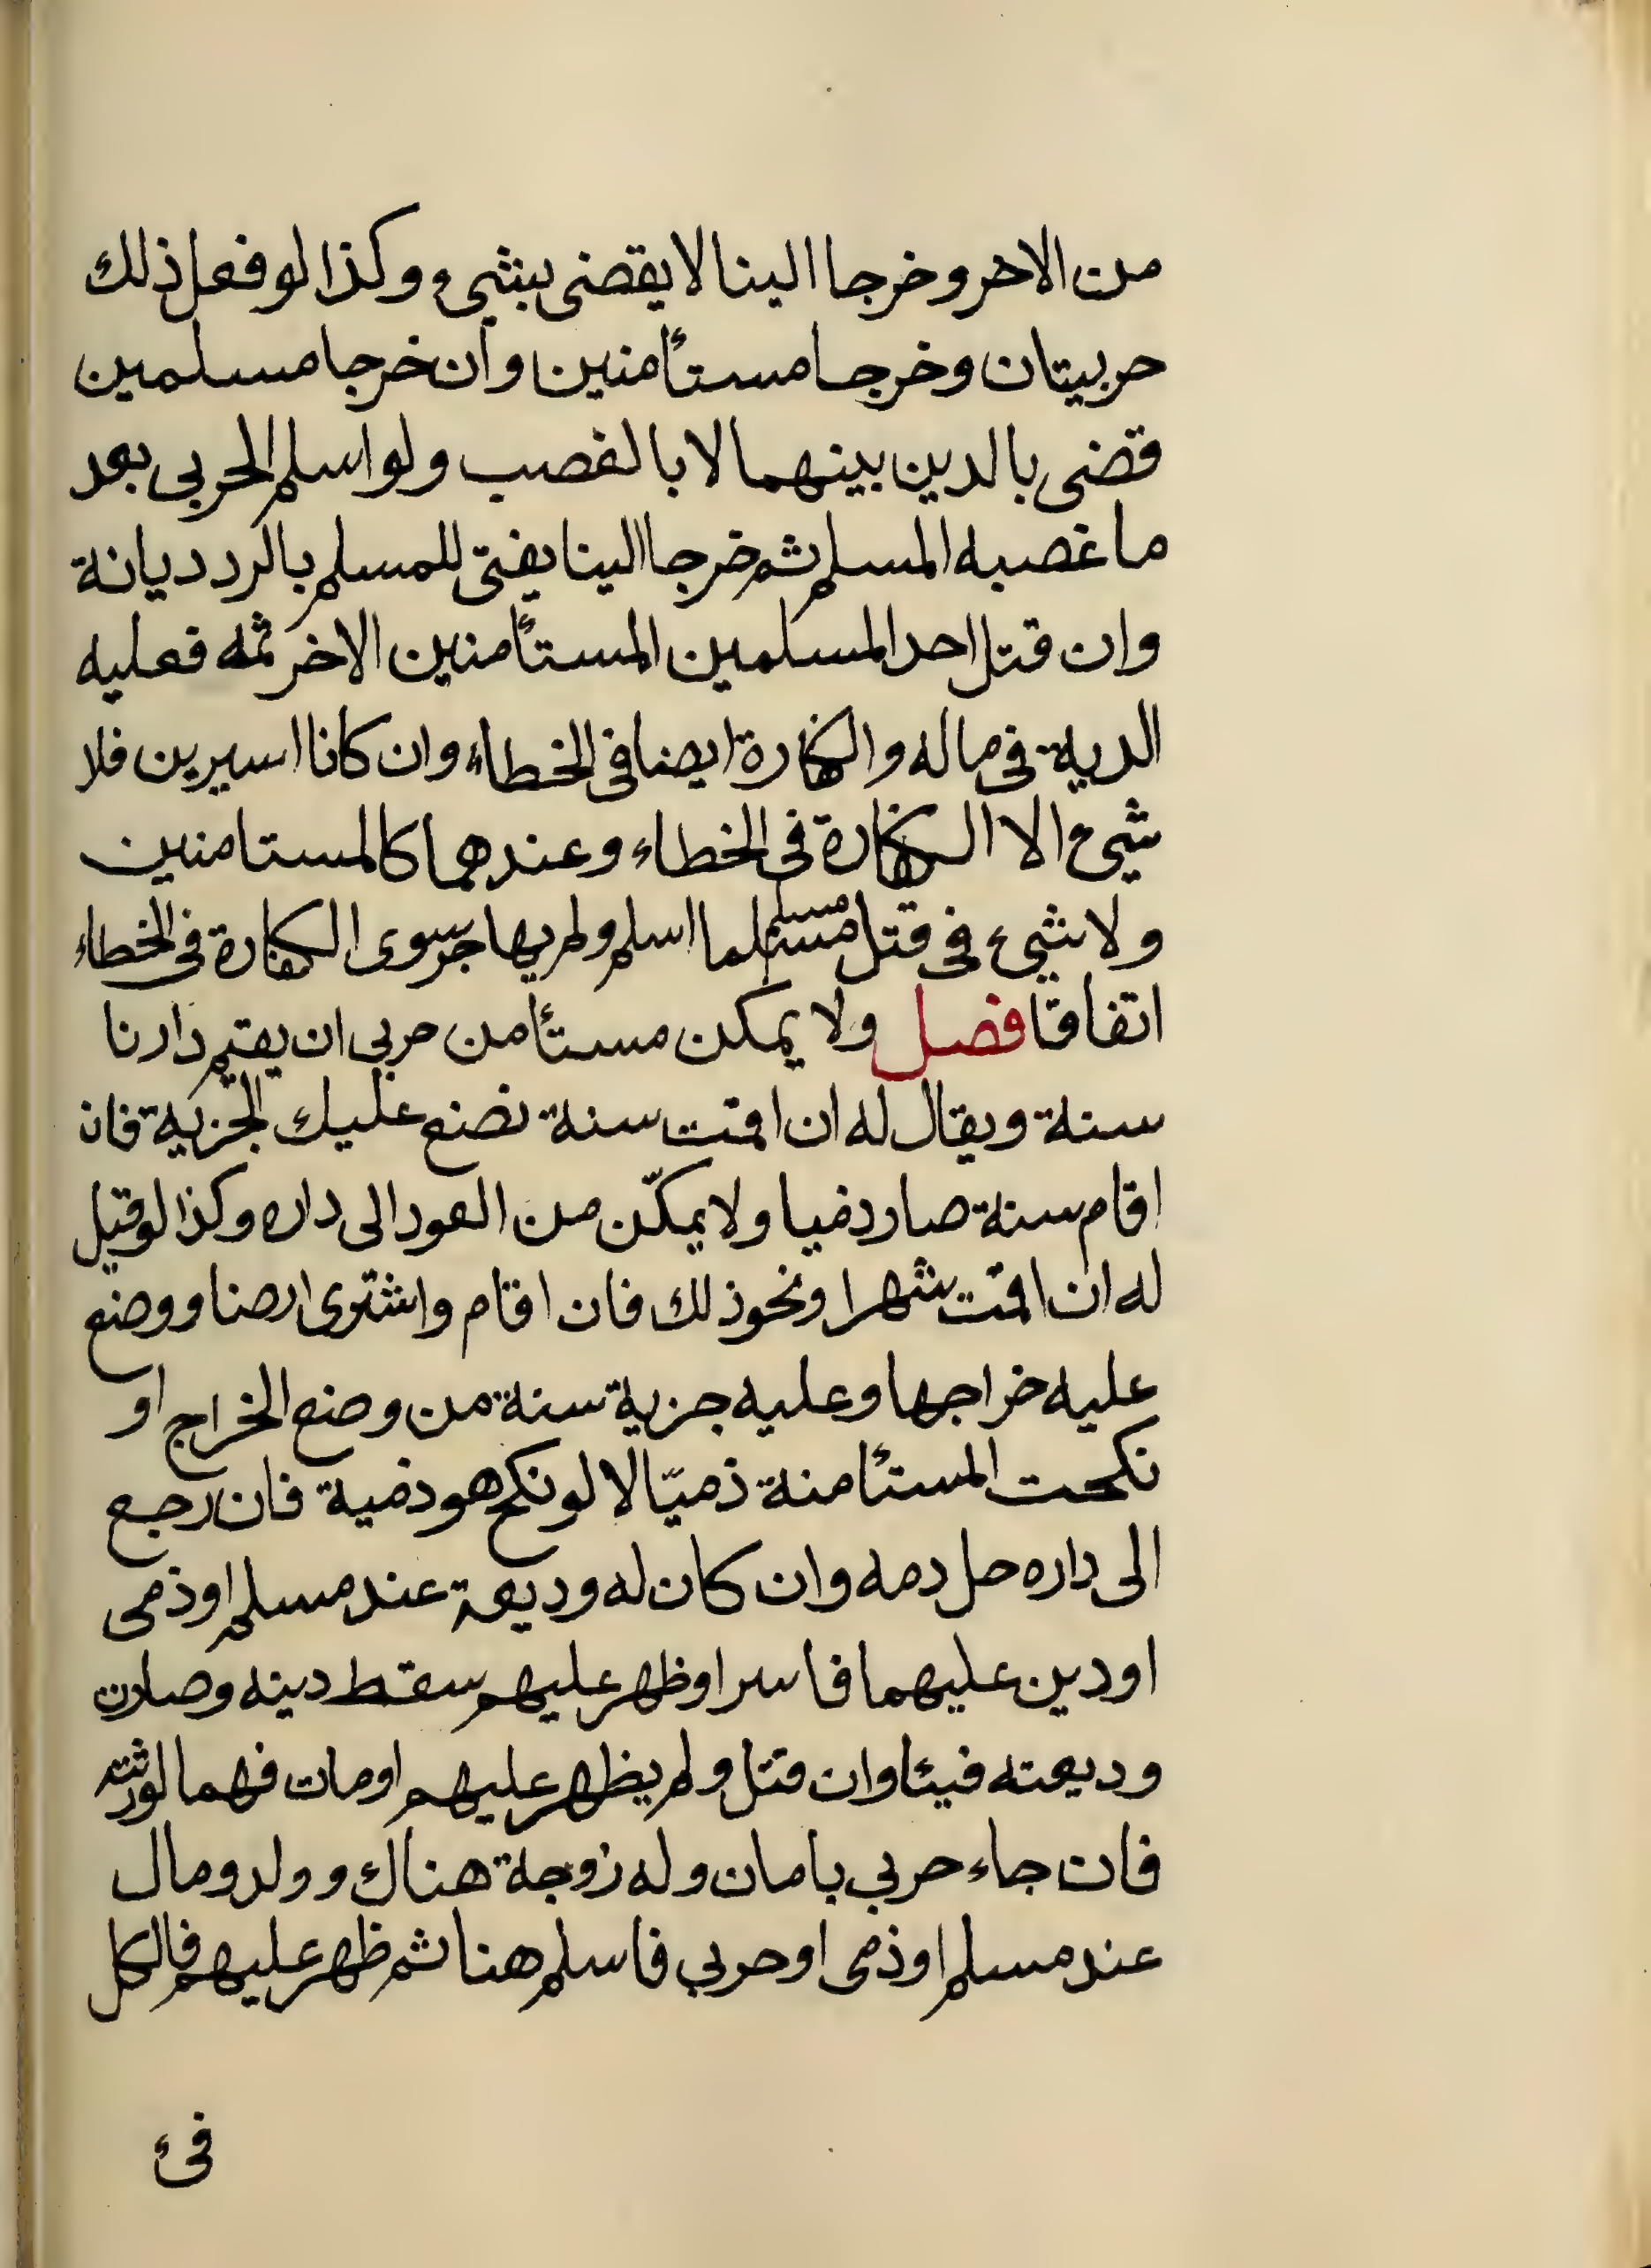 من الاخر وخرجا الينا لا يقضى بشيء وكذا لو فعل ذلك
حربيتان وخرجا مستأمنين وان خرجا مسلمين
قضى بالدين بينهما لا بالغصب ولو اسلم الحربى بعد
ما غصبه المسلم ثم خرجا الينا يفتى للمسلم بالرد ديانة
وان قتل احد المسلمين المستأمنين الاخر ثمه فعليه
الدية فى ماله والكفارة ايضا فى الخطاء وان كانا اسيرين فلا
شيء الا الكفارة فى الخطاء وعندهما كالمستامنين
ولا شيء فى قتل مسلم مسلما اسلم ولم يهاجر سوى الكفارة فى الخطاء
اتفاقا فصل ولا يمكن مستأمن حربى ان يقيم دارنا
سنة ويقال له ان اقمت سنة نضع عليك الجزية فان
اقام سنة صار ذميا ولا يمكّن من العود الى داره وكذا لو قيل
له ان اقمت شهرا ونحو ذلك فان اقام واشترى ارضا ووضع
عليه خراجها وعليه جزية سنة من وضع الخراج او
نكحت المستأمنة ذميّا لا لو نكح هو ذمية فان رجع
الى داره حل دمه وان كان له وديعة عند مسلم او ذمى
او دين عليهما فاسر او ظهر عليهم سقط دينه وصارت
وديعته فيئا وان قتل ولم يظهر عليهم او مات فهما لورثته
فان جاء حربي بامان وله زوجة هناك وولد ومال
عند مسلم او ذمى او حربي فاسلم هنا ثم ظهر عليهم فالكل
فىء